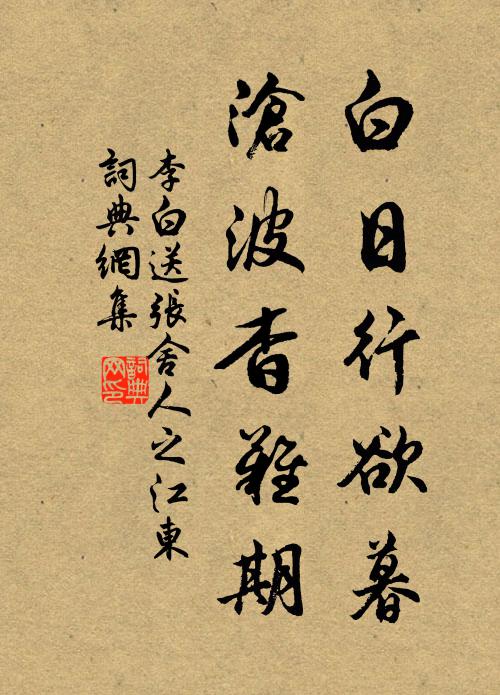 白日行欲暮
滄波杳難期
李白送張舍人之江東
詞典網集
詞典網印